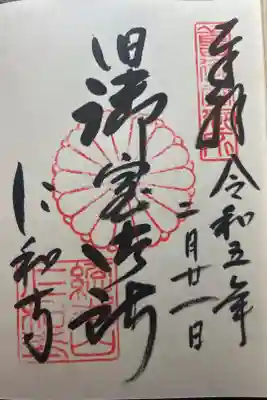 奉拝
令和五年
二月廿一日
旧御室御所
仁和寺